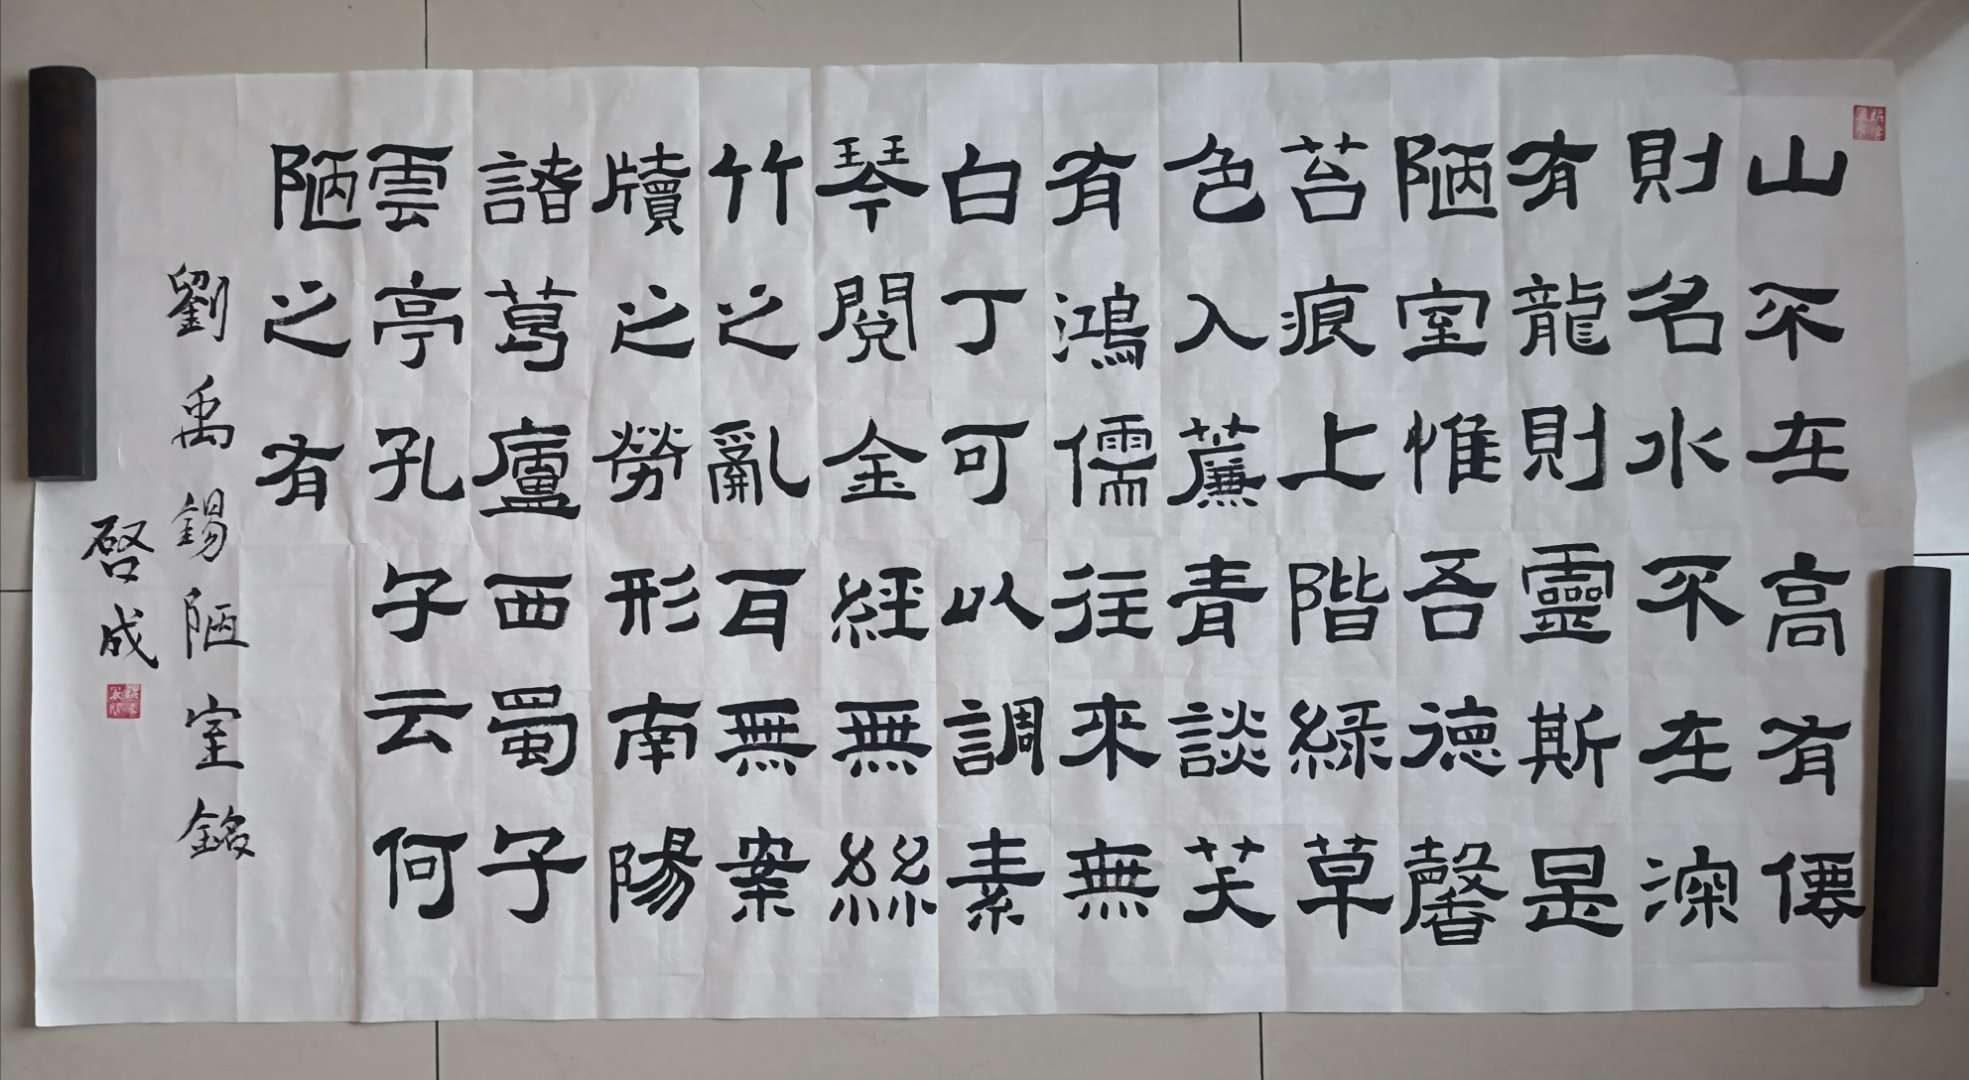 山不在高有僊
則名水不在深
有龍則靈斯是
陋室惟吾德馨
苔痕上階綠草
色入簾青談笑
有鴻儒往來無
白丁可以調素
琴閱金經無絲
竹之亂百無案
牘之勞形南陽
諸葛廬西蜀子
雲亭孔子云何
陋之有
劉禹錫陋室銘
啓成